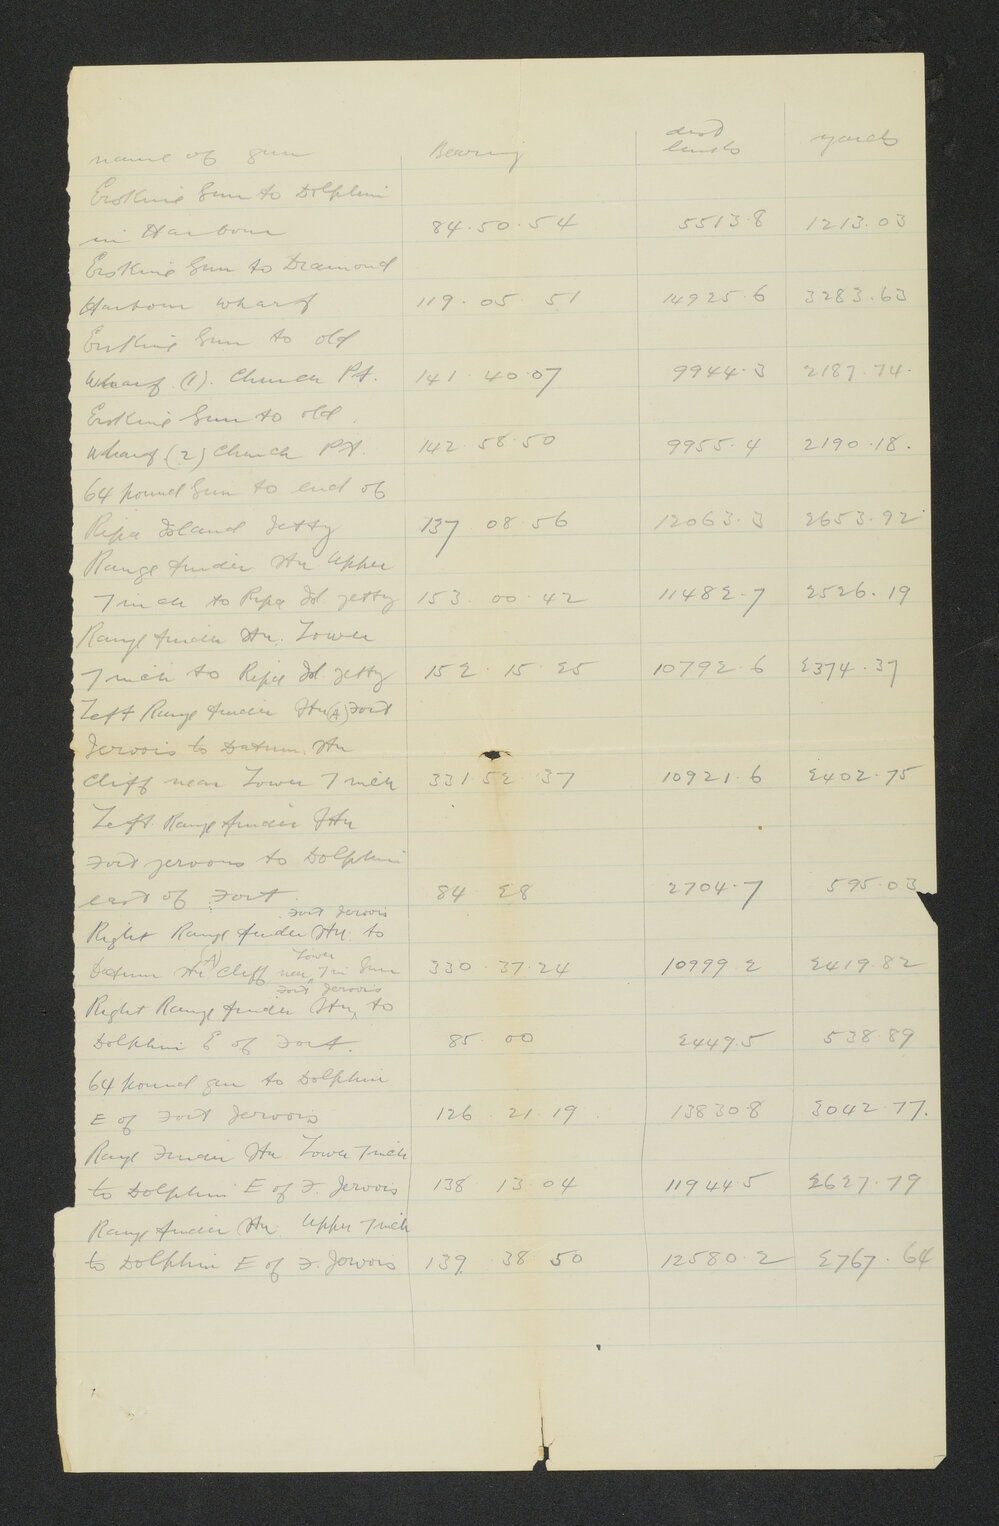 name of gun Bearing dist links yards
Erskine Gun to Dolphin
in Harbour 84.50.54 5513.8 1213.03
Erskine Gun to Diamond
Harbour wharf 119.05.51 14925.6 3283.63
Erskine Gun to old
wharf (1). Church Pt. 141.40.07 9944.3 2187.74.
Erskine Gun to old.
wharf (2) Church Pt. 142.58.50 9955.4 2190.18.
64 pound Gun to end of
Ripa Island Jetty 137.08.56 12063.3 2653.92
Range finder Stn Upper
7 inch to Ripa Isl jetty 153.00.42 11482.7 2526.19
Range finder Stn. Lower
7 inch to Ripa Isl. jetty 152.15.25 10792.6 2374.37
Left Range finder Stn (A) Fort
Jervois to Datum. Stn
Cliff near Lower 7 inch 331.52.37 10921.6 2402.75
Left. Range finder Stn
Fort Jervois to Dolphin
east of Fort 84.28 2704.7 595.03
Fort Jervois
Right Range finder Stn. to
(A) Lower
Datum Stn Cliff near 7 in Gun 330.37.24 10999.2 2419.82
Fort Jervois
Right Range finder Stn, to
Dolphin E of Fort. 85.00 2449.5 538.89
64 pound gun to Dolphin
E of Fort Jervois 126.21.19 13830.8 3042.77.
Range Finder Stn Lower 7 inch
to Dolphin E of F. Jervois 138.13.04 11944.5 2627.79
Range finder Stn. Upper 7 inch
to Dolphin E of F. Jervois 139.38.50 12580.2 2767.64